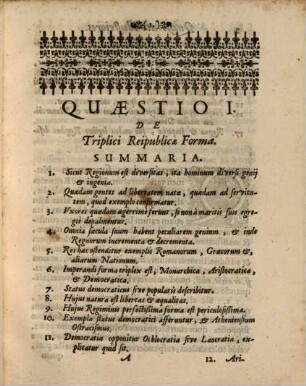 QUÆSTIO I.
DE
Triplici Reipublicæ Forma.
SUMMARIA.
1. Sicut Regionum est diversitas, ita hominum diversi genii
& ingenia.
2. Quædam gentes ad libertatem natæ, quædam ad servitu-
tem, quod exemplo confirmatur.
3. Vxores quædam ægerrimè ferunt, si non à maritis suis egre-
giè depalmentur.
4. Omnia sæcula suum habent peculiarem genium, & inde
Regnorum incrementa & decrementa.
5. Res hac ostenditur exemplis Romanorum, Græcorum &
aliarum Nationum.
6. Imperandi forma triplex est, Monarchica, Aristocratica,
& Democratica.
7. Status democraticus sive popularis describitur.
8. Hujus natura est libertas & æqualitas.
9. Hujus Regiminis perfectissima forma est periculosissima.
10. Exempla status democratici afferuntur, & Atheniensium
Ostracismus.
11. Democratia opponitur Ochlocratia sive Laocratia, ex-
plicatur quid sit.
A 12. Ari-